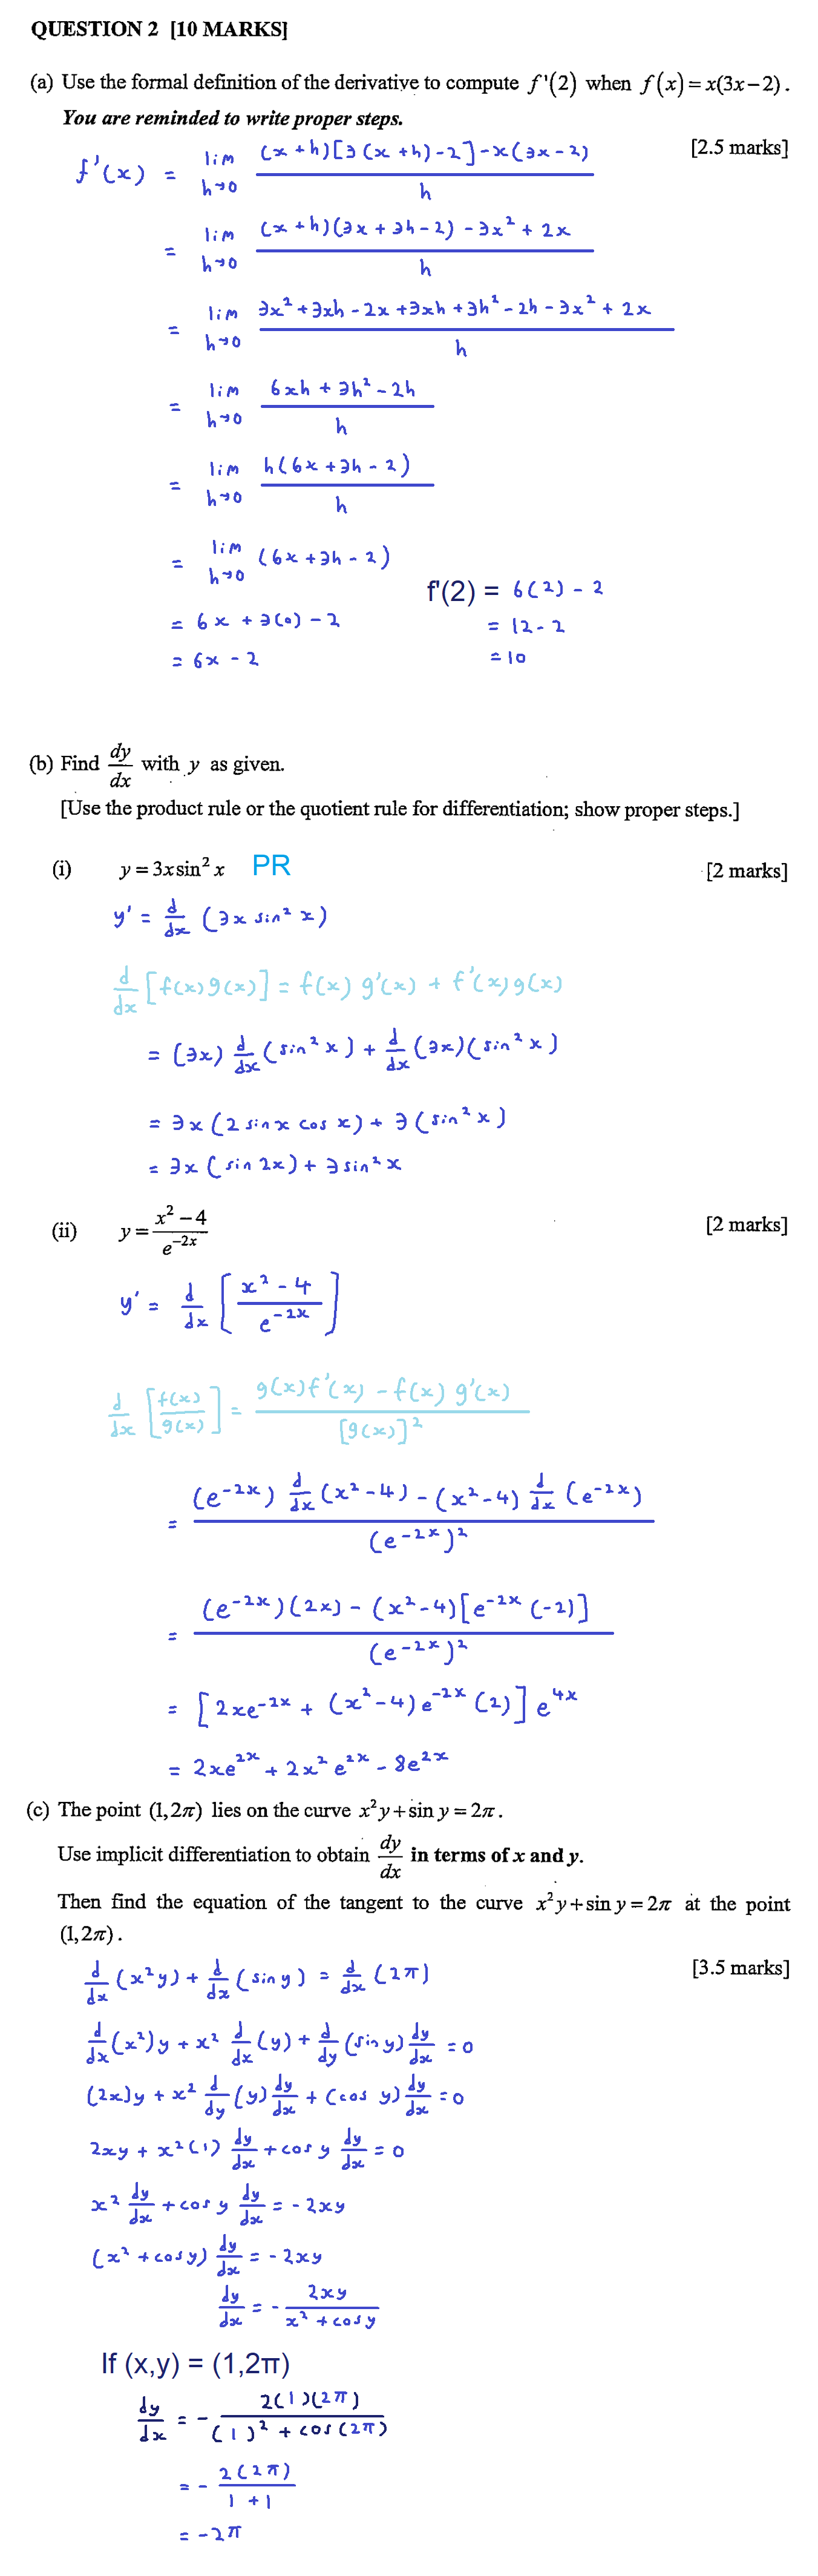 QUESTION 2 [10 MARKS]
(a) Use the formal definition of the derivative to compute f'(2) when f(x) = x(3x−2).
You are reminded to write proper steps.
[2.5 marks]
f'(x) = lim h→0 ((x+h)[3(x+h)-2]-x(3x-2))/h
= lim h→0 ((x+h)(3x+3h-2)-3x²+2x)/h
= lim h→0 (3x²+3xh-2x+3xh+3h²-2h-3x²+2x)/h
= lim h→0 (6xh+3h²-2h)/h
= lim h→0 (h(6x+3h-2))/h
= lim h→0 (6x+3h-2)
= 6x+3(0)-2
= 6x-2
f'(2) = 6(2)-2
= 12-2
= 10
(b) Find dy/dx with y as given.
[Use the product rule or the quotient rule for differentiation; show proper steps.]
(i) y = 3x sin² x PR [2 marks]
y' = d/dx (3x sin² x)
d/dx [f(x)g(x)] = f(x) g'(x) + f'(x)g(x)
= (3x) d/dx (sin² x) + d/dx (3x)(sin² x)
= 3x(2 sin x cos x) + 3(sin² x)
= 3x(sin 2x) + 3 sin² x
(ii) y = (x²−4)/e^(−2x) [2 marks]
y' = d/dx [(x²-4)/e^(-2x)]
d/dx [f(x)/g(x)] = (g(x)f'(x) - f(x) g'(x))/[g(x)]²
= ((e^(-2x)) d/dx (x²-4) - (x²-4) d/dx (e^(-2x)))/(e^(-2x))²
= ((e^(-2x))(2x) - (x²-4)[e^(-2x) (-2)])/(e^(-2x))²
= [2xe^(-2x) + (x²-4)e^(-2x) (2)] e^(4x)
= 2xe^(2x) + 2x² e^(2x) - 8e^(2x)
(c) The point (1,2π) lies on the curve x²y + sin y = 2π.
Use implicit differentiation to obtain dy/dx in terms of x and y.
Then find the equation of the tangent to the curve x²y + sin y = 2π at the point
(1,2π).
[3.5 marks]
d/dx (x²y) + d/dx (sin y) = d/dx (2π)
d/dx (x²)y + x² d/dx (y) + d/dy (sin y) dy/dx = 0
(2x)y + x² d/dy (y) dy/dx + (cos y) dy/dx = 0
2xy + x²(1) dy/dx + cos y dy/dx = 0
x² dy/dx + cos y dy/dx = - 2xy
(x² + cos y) dy/dx = - 2xy
dy/dx = - 2xy/(x² + cos y)
If (x,y) = (1,2π)
dy/dx = - 2(1)(2π)/((1)² + cos(2π))
= - 2(2π)/(1+1)
= -2π